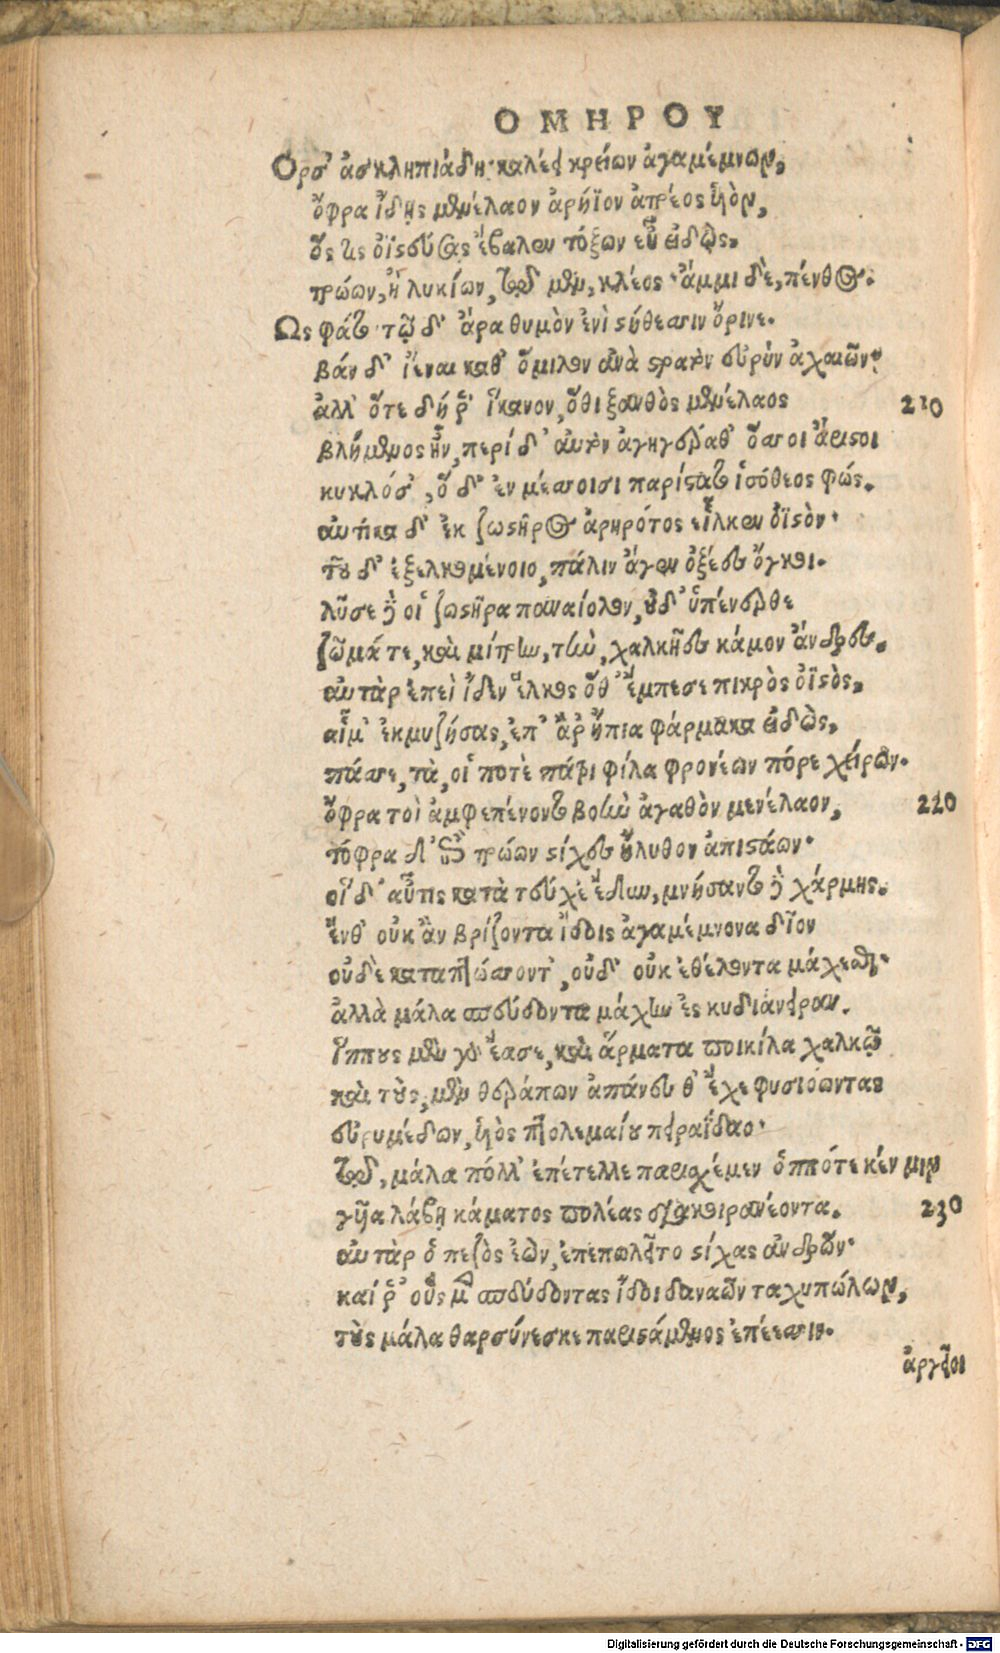 ΟΜΗΡΟΥ
Ὄρσ' ἀσκληπιάδη· καλέει κρείων ἀγαμέμνων,
ὄφρα ἴδῃς μενέλαον ἀρήϊον ἀτρέος υἱὸν,
ὅς τις ὀϊστεύσας ἔβαλεν τόξων εὖ εἰδὼς,
τρώων, ἢ λυκίων, τῷ μὲν, κλέος· ἄμμι δὲ, πένθος.
Ως φάτο· τῷ δ' ἄρα θυμὸν ἐνὶ στήθεσσιν ὄρινε.
βὰν δ' ἰέναι καθ' ὅμιλον ἀνὰ στρατὸν εὐρὺν ἀχαιῶν·
ἀλλ' ὅτε δή ῥ' ἵκανον, ὅθι ξανθὸς μενέλαος 210
βλήμενος ἦν, περὶ δ' αὐτὸν ἀγηγέραθ' ὅσσοι ἄριστοι
κυκλόσ', ὁ δ' ἐν μέσσοισι παρίστατο ἰσόθεος φώς.
αὐτίκα δ' ἐκ ζωστῆρος ἀρηρότος εἷλκεν ὀϊστὸν·
τοῦ δ' ἐξελκομένοιο, πάλιν ἄγεν ὀξέες ὄγκοι.
λῦσε δέ οἱ ζωστῆρα παναίολον, ἠδ' ὑπένερθε
ζῶμά τε, καὶ μίτρην, τὴν, χαλκῆες κάμον ἄνδρες.
αὐτὰρ ἐπεὶ ἴδεν ἕλκος ὅθ' ἔμπεσε πικρὸς ὀϊστὸς,
αἷμ' ἐκμυζήσας, ἐπ' ἄρ' ἤπια φάρμακα εἰδὼς,
πάσσε, τὰ, οἱ ποτὲ πατρὶ φίλα φρονέων πόρε χείρων.
ὄφρα τοὶ ἀμφεπένοντο βοὴν ἀγαθὸν μενέλαον, 220
τόφρα δ' ἐπὶ τρώων στίχες ἤλυθον ἀσπιστάων·
οἱ δ' αὖτις κατὰ τεύχε' ἔδυν, μνήσαντο δὲ χάρμης.
ἔνθ' οὐκ ἂν βρίζοντα ἴδοις ἀγαμέμνονα δῖον
οὐδὲ καταπτώσσοντ', οὐδ' οὐκ ἐθέλοντα μάχεσθαι·
ἀλλὰ μάλα σπεύδοντα μάχην ἐς κυδιάνειραν.
ἵππους μὲν γὰρ ἔασε, καὶ ἅρματα ποικίλα χαλκῷ
καὶ τοὺς, μὲν θεράπων ἀπάνευθ' ἔχε φυσιόωντας
εὐρυμέδων, υἱὸς πτολεμαίου πειραΐδαο·
τῷ, μάλα πόλλ' ἐπέτελλε παρισχέμεν ὁππότε κέν μιν
γυῖα λάβῃ κάματος πολέας διακοιρανέοντα. 230
αὐτὰρ ὁ πεζὸς ἐὼν, ἐπεπωλεῖτο στίχας ἀνδρῶν·
καί ῥ' οὓς μὲν σπεύδοντας ἴδοι δαναῶν ταχυπώλων,
τοὺς μάλα θαρσύνεσκε παριστάμενος ἐπέεσσιν.
ἀργεῖοι
Digitalisierung gefördert durch die Deutsche Forschungsgemeinschaft - DFG